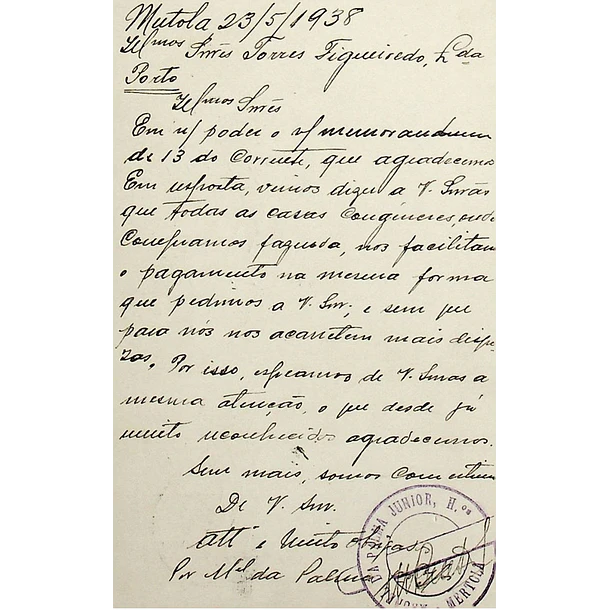 Mertola 23/5/1938
Ilmos Snrs Torres Figueiredo, Lda
Porto
Ilmos Snrs
Em n/ poder o v/ memorandum
de 13 do Corrente, que agradecemos
Em resposta, vimos dizer a V. Snras
que todas as casas Congéneres, onde
Compramos fazenda, nos facilitam
o pagamento na mesma forma
que pedimos a V. Snr, e sem que
para nós nos acarretem mais despe-
zas. Por isso, esperamos de V. Snras a
mesma atenção, o que desde já
muito reconhecidos agradecemos.
Sem mais, somos Com estima
De V. Snr.
Att e Muito Obrigados
Por Mel da Palma
PALMA JUNIOR, H.os
MERTOLA